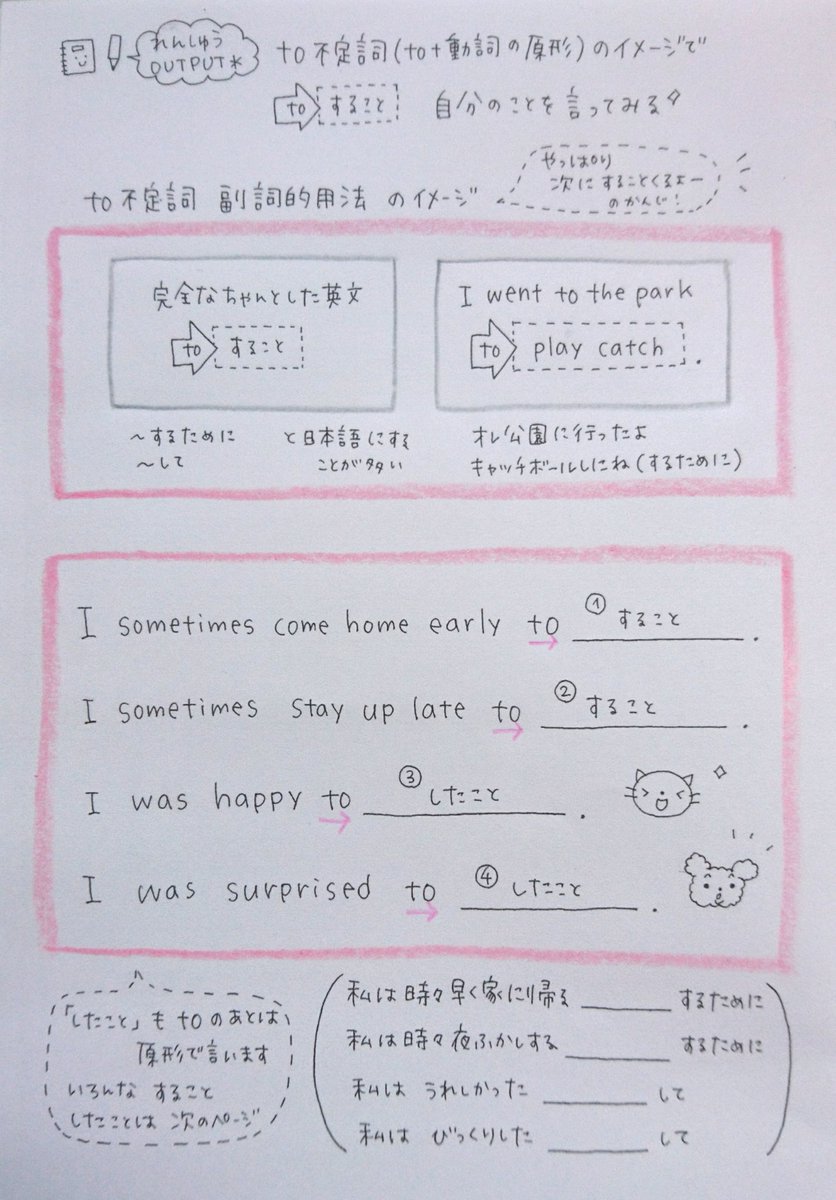 れんしゅう
OUTPUT*
to 不定詞(to+動詞の原形)のイメージで
to すること 自分のことを言ってみる
to 不定詞 副詞的用法 のイメージ
やっぱり
次に することくるよー
のかんじ!
完全なちゃんとした英文
to すること
I went to the park
to play catch.
~するために と日本語にする
~して ことが多い
オレ公園に行ったよ
キャッチボールしにね(するために)
I sometimes come home early to ①すること.
I sometimes stay up late to ②すること.
I was happy to ③したこと.
I was surprised to ④したこと.
「したこと」も toのあとは
原形で言います
いろんな すること
したことは 次のページ
(私は時々早く家に帰る ______ するために
私は時々夜ふかしする ______ するために
私は うれしかった ______ して
私は びっくりした ______ して)